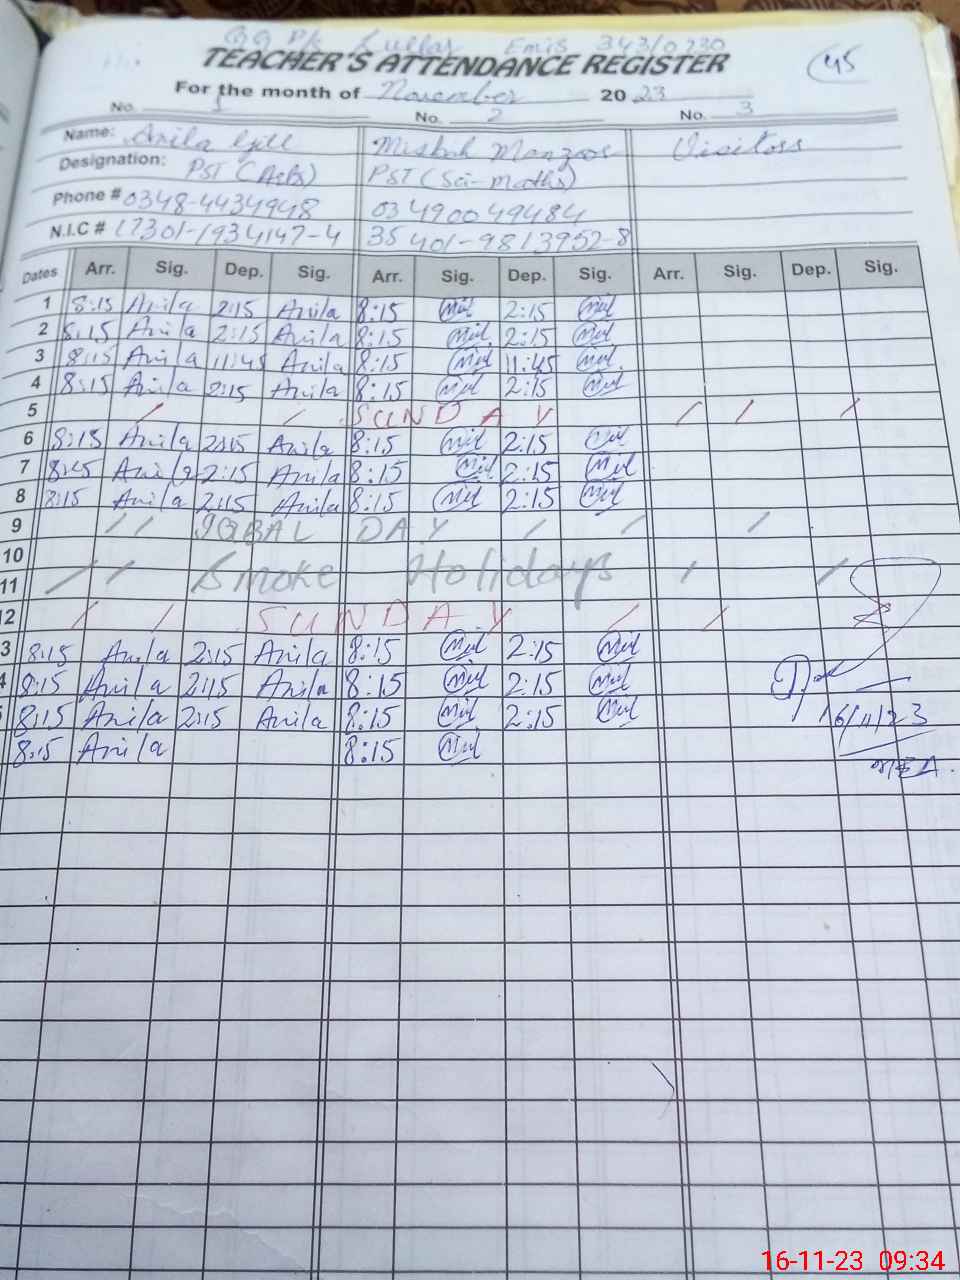 GG P/s Kullar Emis 34310230
TEACHER'S ATTENDANCE REGISTER
45
For the month of November 20 23
No. 1 No. 2 No. 3
Name: Anila Gill Misbah Manzoor Visitors
Designation: PST (Arts) PST (Sci-Maths)
Phone # 0348-4434948 03490049484
N.I.C # 17301-1934147-4 35401-9813952-8
Dates Arr. Sig. Dep. Sig. Arr. Sig. Dep. Sig. Arr. Sig. Dep. Sig.
1 8:15 Anila 2:15 Anila 8:15 2:15
2 8:15 Anila 2:15 Anila 8:15 2:15
3 8:15 Anila 11:45 Anila 8:15 11:45
4 8:15 Anila 2:15 Anila 8:15 2:15
5 SUNDAY
6 8:15 Anila 2:15 Anila 8:15 2:15
7 8:15 Anila 2:15 Anila 8:15 2:15
8 8:15 Anila 2:15 Anila 8:15 2:15
9 IQBAL DAY
10
11 Smoke Holidays
12 SUNDAY
3 8:15 Anila 2:15 Anila 8:15 2:15
4 8:15 Anila 2:15 Anila 8:15 2:15
5 8:15 Anila 2:15 Anila 8:15 2:15
16/11/23
8:15 Anila 8:15
16-11-23 09:34